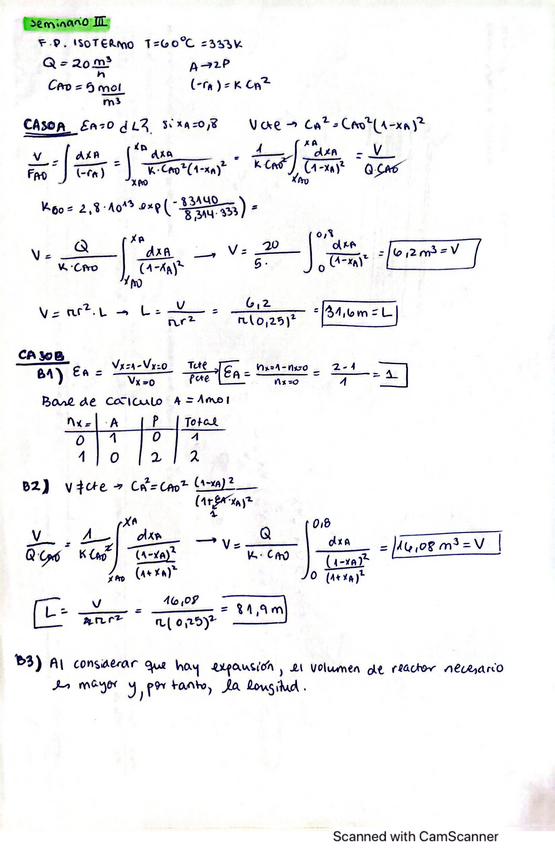 Seminario III
F.P. ISOTERMO T=60°C = 333K
Q = 20 m³/h A → 2P
CA0 = 5 mol/m³ (-rA) = K CA²
CASO A εA=0 d L?, si xA=0,8 V cte → CA² = CA0² (1-xA)²
V/FA0 = ∫ dxA/(-rA) = ∫xA0^xA dxA/(K·CA0²(1-xA)²) = 1/(K CA0²) ∫xA0^xA dxA/(1-xA)² = V/(Q·CA0)
K60 = 2,8·10¹³ exp(-83140/(8,314·333)) =
V = Q/(K·CA0) ∫xA0^xA dxA/(1-xA)² → V = 20/5· ∫0^0,8 dxA/(1-xA)² = 6,2 m³ = V
V = πr²·L → L = V/πr² = 6,2/π(0,25)² = 31,6m = L
CASO B
B1) εA = (Vx=1 - Vx=0)/Vx=0 Tcte Pcte εA = (nx=1 - nx=0)/nx=0 = (2-1)/1 = 1
Base de cálculo A = 1mol
nx= A P Total
0 1 0 1
1 0 2 2
B2) V≠cte → CA² = CA0² (1-xA)²/(1+εA·xA)²
1
V/(Q·CA0) = 1/(K CA0²) ∫xA0^xA dxA/((1-xA)²/(1+xA)²) → V = Q/(K·CA0) ∫0^0,8 dxA/((1-xA)²/(1+xA)²) = 16,08 m³ = V
L = V/πr² = 16,08/π(0,25)² = 81,9m
B3) Al considerar que hay expansión, el volumen de reactor necesario
es mayor y, por tanto, la longitud.
Scanned with CamScanner